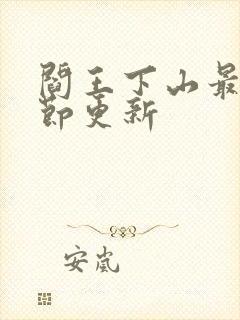 閻王下山最
節更新
安嵐